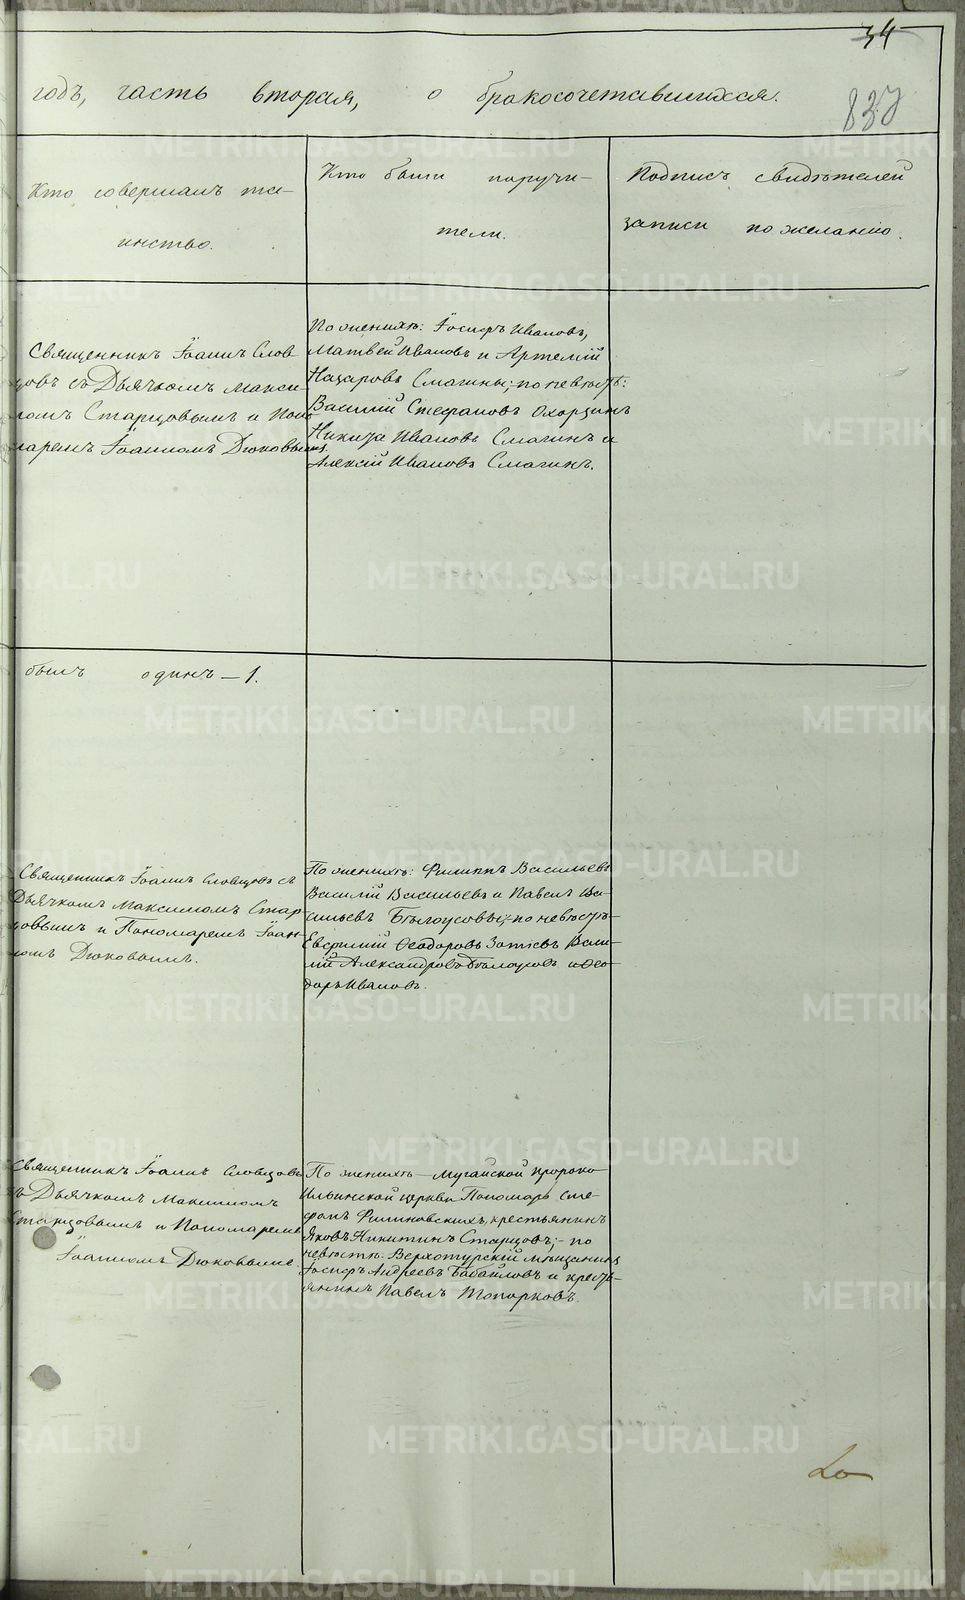 34
837
годъ, часть вторая, о бракосочетавшихся.
Кто совершалъ та-
инство.
Кто были поручи-
тели.
Подпись свидѣтелей
записи по желанію.
Священникъ Іоаннъ Слов-
цовъ съ Дьячкомъ Макси-
момъ Старцовымъ и Поно-
маремъ Іоанномъ Дюковымъ
По женихѣ: Іосифъ Ивановъ,
Матвей Ивановъ и Артемій
Назаровъ Смагины; по невѣстѣ:
Василій Стефановъ Охорзинъ
Никита Ивановъ Смагинъ и
Алексій Ивановъ Смагинъ.
былъ одинъ — 1.
Священникъ Іоаннъ Словцовъ съ
Дьячкомъ Максимомъ Стар-
цовымъ и Пономаремъ Іоан-
номъ Дюковымъ.
По женихѣ: Филиппъ Васильевъ
Василій Васильевъ и Павелъ Ва-
сильевъ Бѣлоусовы; по невѣстѣ-
Евфимій Ѳеодоровъ Василій
Александровъ Бѣлоусовъ и Ѳео-
доръ Ивановъ.
Священникъ Іоаннъ Словцовъ
съ Дьячкомъ Максимомъ
Старцовымъ и Пономаремъ
Іоанномъ Дюковымъ.
По женихѣ — Мугайской Пророко-
Ильинской церкви Пономарь Сте-
фанъ Филиновскихъ, крестьянинъ
Яковъ Никитинъ Старцовъ; — по
невѣстѣ: Верхотурскій мѣщанинъ
Іосифъ Андреевъ Бабайловъ и кресть-
янинъ Павелъ Топорковъ.
METRIKI.GASO-URAL.RU